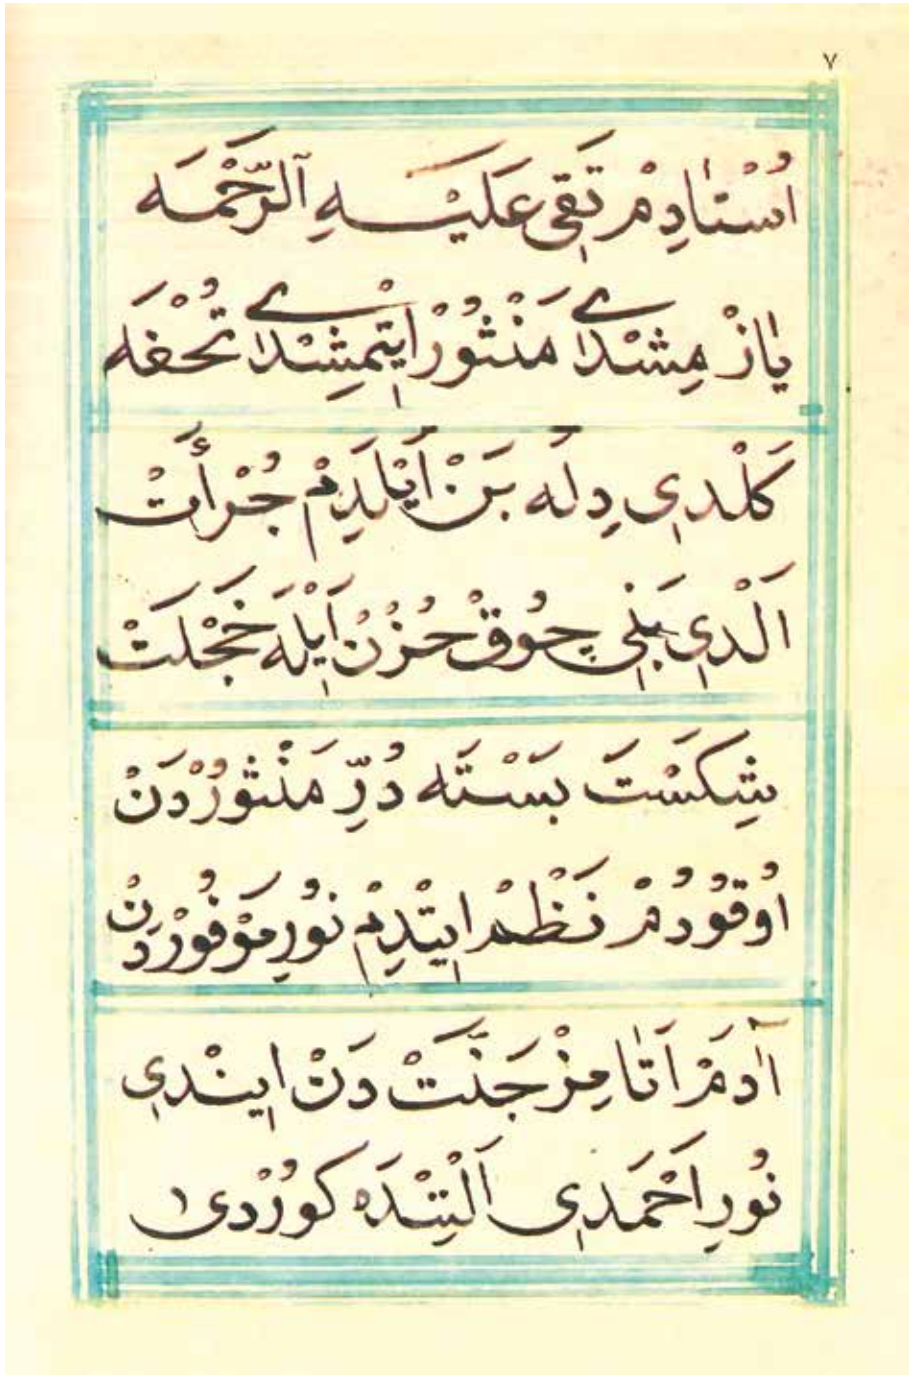 ٧
اُسْتٰادِمْ تَقِى عَلَيْهِ اَلرَّحْمَه
يٰازْمِشْدِى مَنْثُورْ اِيتْمِشْدِى تُحْفَه
كَلْدِى دِلَه بَنْ اَيْلَدِمْ جُرْأَتْ
اَلْدِى بَنِى چُوقْ حُزْنْ اَيْلَه خَجْلَتْ
شِكَسْتَ بَسْتَه دُرِّ مَنْثُورْدَنْ
اُوقُودُمْ نَظْمْ اِيتْدِمْ نُورِ مَوْفُورْدَنْ
اٰدَمْ اَتٰامِزْ جَنَّتْ دَنْ اِينْدِى
نُورِ اَحْمَدِى اَلْنِنْدَه كُورْدِى